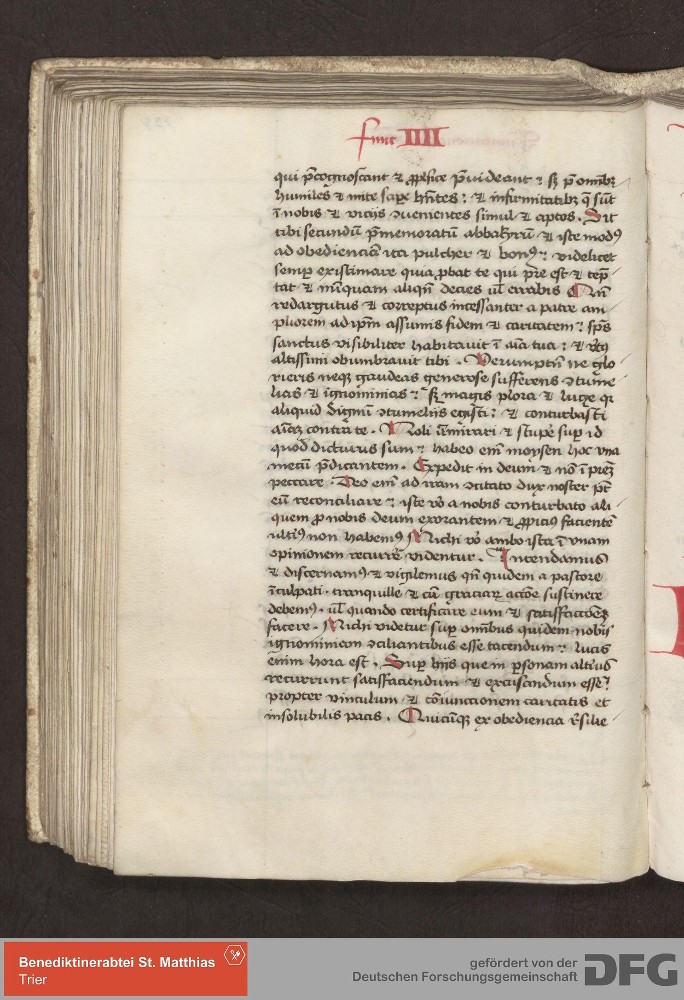 func IIII
qui p̄cognoscant ⁊ ꝓspice p̄uideant : sꝫ p̄ omnibꝫ
humiles ⁊ mite sape hn̄tes : ⁊ infirmitatibꝫ q̄ sūt
ī nobis ⁊ vicijs ꝯuenientes simul ⁊ aptos . Sit
tibi secundū p̄memoratū abbakyrū ⁊ iste modꝰ
ad obediencīa ita pulcher ⁊ bonꝰ : videlicet
semp existimare quia ꝓbat te qui pr̄e est ⁊ tep̄
tat ⁊ nūquam aliqn̄ decies ul̄ errabis Cū
redargutus ⁊ correptus incessanter a patre am
pliorem ad ip̄m assumis fidem ⁊ caritatem : sp̄s
sanctus visibiliter habitauit ī aīa tua : ⁊ v̄tꝰ
altissimi obumbrauit tibi . Verumptn̄ ne glo
rieris neqꝫ gaudeas generose sufferens ꝯtume
lias ⁊ ignominias : sꝫ magis plora ⁊ luge qi
aliquid dignū ꝯtumelijs egisti : ⁊ conturbasti
aīaꝫ contra te . Noli āmirari ⁊ stupē sup id
quod dicturus sum : habeo em̄ moysen hoc vna
mecū p̄dicantem . Expedit in deum ⁊ nō ī pr̄eꝫ
peccare . Deo em̄ ad iram ꝯcitato dux noster pt̄
eū reconciliare : iste v̄o a nobis conturbato ali
quem ꝓ nobis deum exorantem ⁊ ꝓpiciū faciente
ultīꝰ non habemꝰ Michi v̄o ambo ista ī vnam
opinionem recurre videntur . Intendamus
⁊ discernamꝰ ⁊ vigilemus qn̄ quidem a pastore
īculpati . tranquille ⁊ cū graciaꝝ acōe sustinere
debemꝰ . ul̄ quando certificare eum ⁊ satisfactōeꝫ
facere . Michi videtur sup omnibus quidem nobis
ignominiam ꝯciliantibus esse tacendum : lucis
enim hora est . Sup hijs que in psonam altiꝰ
recurrunt satisfaciendum ⁊ excusandum esse :
propter vinculum ⁊ cōiunctionem caritatis et
insolubilis pacis . Quicūqꝫ ex obediencia r̄silie
Benediktinerabtei St. Matthias
Trier
gefördert von der
Deutschen Forschungsgemeinschaft DFG